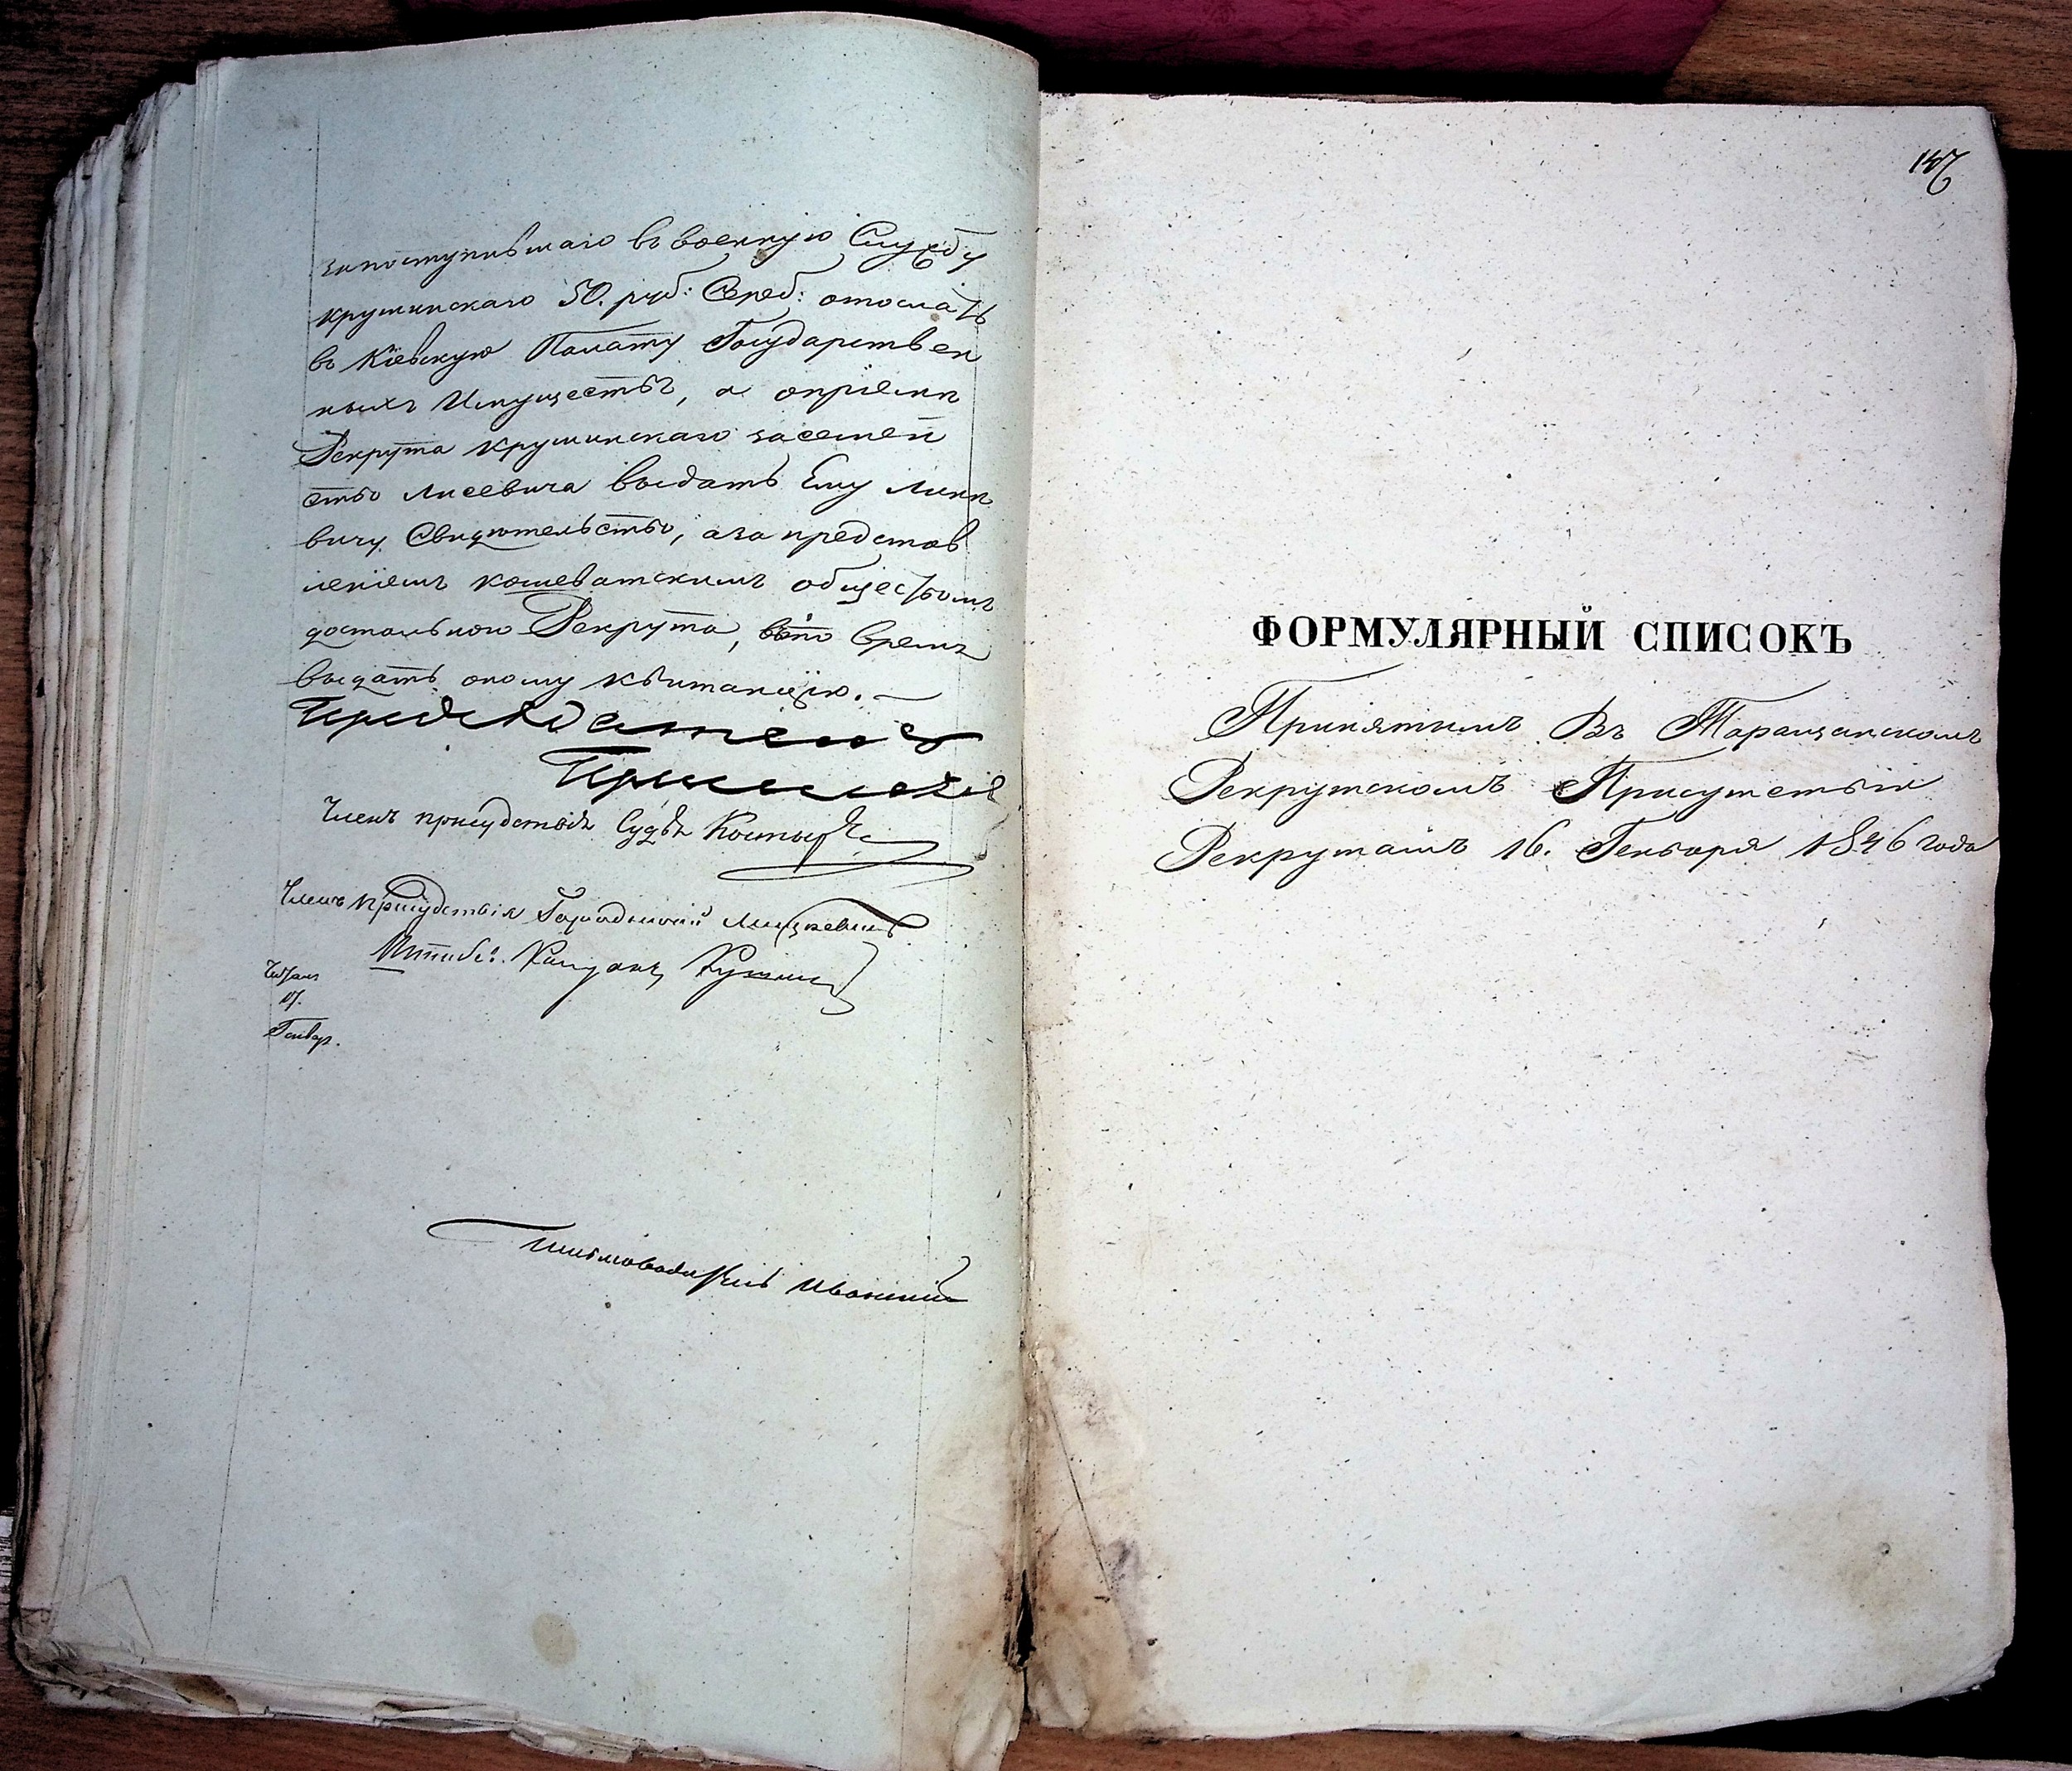 запоступившаго въ военную Службу
крушинскаго 50. руб: Сереб: отослать
въ Кіевскую Палату Государствен
ныхъ Имуществъ, а опріемѣ
Рекрута крушинскаго засемей
ство Лисевича выдать Ему
вичу Свидѣтельство, аза представ
леніемъ кошеватскимъ обществомъ
достальнаго Рекрута, вто время
выдать оному квитанцію.
Предсѣдатель
Членъ присудствія Судья
Членъ присудствія Городничій Мицкевичъ
Читалъ
17.
Генвар.
Письмоводитель
147
ФОРМУЛЯРНЫЙ СПИСОКЪ
Принятымъ Въ Таращанскомъ
Рекрутскомъ Присутствіи
Рекрутамъ 16. Генваря 1846 года